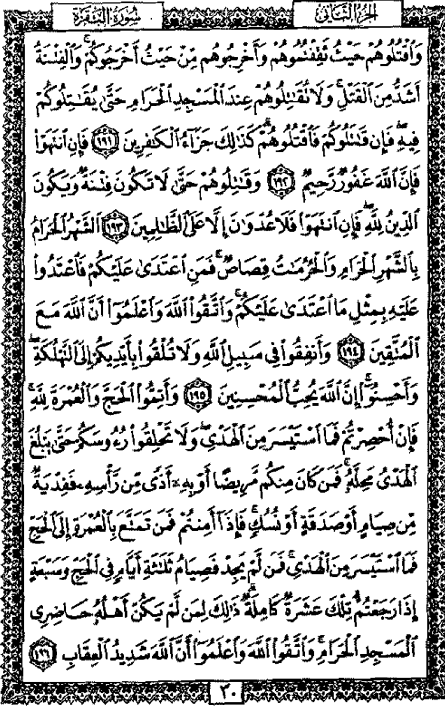 الجزء الثاني سورة البقرة
وَٱقْتُلُوهُمْ حَيْثُ ثَقِفْتُمُوهُمْ وَأَخْرِجُوهُم مِّنْ حَيْثُ أَخْرَجُوكُمْ ۚ وَٱلْفِتْنَةُ
أَشَدُّ مِنَ ٱلْقَتْلِ ۚ وَلَا تُقَٰتِلُوهُمْ عِندَ ٱلْمَسْجِدِ ٱلْحَرَامِ حَتَّىٰ يُقَٰتِلُوكُمْ
فِيهِ ۖ فَإِن قَٰتَلُوكُمْ فَٱقْتُلُوهُمْ ۗ كَذَٰلِكَ جَزَآءُ ٱلْكَٰفِرِينَ ١٩١ فَإِنِ ٱنتَهَوْا۟
فَإِنَّ ٱللَّهَ غَفُورٌ رَّحِيمٌ ١٩٢ وَقَٰتِلُوهُمْ حَتَّىٰ لَا تَكُونَ فِتْنَةٌ وَيَكُونَ
ٱلدِّينُ لِلَّهِ ۖ فَإِنِ ٱنتَهَوْا۟ فَلَا عُدْوَٰنَ إِلَّا عَلَى ٱلظَّٰلِمِينَ ١٩٣ ٱلشَّهْرُ ٱلْحَرَامُ
بِٱلشَّهْرِ ٱلْحَرَامِ وَٱلْحُرُمَٰتُ قِصَاصٌ ۚ فَمَنِ ٱعْتَدَىٰ عَلَيْكُمْ فَٱعْتَدُوا۟
عَلَيْهِ بِمِثْلِ مَا ٱعْتَدَىٰ عَلَيْكُمْ ۚ وَٱتَّقُوا۟ ٱللَّهَ وَٱعْلَمُوٓا۟ أَنَّ ٱللَّهَ مَعَ
ٱلْمُتَّقِينَ ١٩٤ وَأَنفِقُوا۟ فِى سَبِيلِ ٱللَّهِ وَلَا تُلْقُوا۟ بِأَيْدِيكُمْ إِلَى ٱلتَّهْلُكَةِ ۛ
وَأَحْسِنُوٓا۟ ۛ إِنَّ ٱللَّهَ يُحِبُّ ٱلْمُحْسِنِينَ ١٩٥ وَأَتِمُّوا۟ ٱلْحَجَّ وَٱلْعُمْرَةَ لِلَّهِ ۚ
فَإِنْ أُحْصِرْتُمْ فَمَا ٱسْتَيْسَرَ مِنَ ٱلْهَدْىِ ۖ وَلَا تَحْلِقُوا۟ رُءُوسَكُمْ حَتَّىٰ يَبْلُغَ
ٱلْهَدْىُ مَحِلَّهُۥ ۚ فَمَن كَانَ مِنكُم مَّرِيضًا أَوْ بِهِۦٓ أَذًى مِّن رَّأْسِهِۦ فَفِدْيَةٌ
مِّن صِيَامٍ أَوْ صَدَقَةٍ أَوْ نُسُكٍ ۚ فَإِذَآ أَمِنتُمْ فَمَن تَمَتَّعَ بِٱلْعُمْرَةِ إِلَى ٱلْحَجِّ
فَمَا ٱسْتَيْسَرَ مِنَ ٱلْهَدْىِ ۚ فَمَن لَّمْ يَجِدْ فَصِيَامُ ثَلَٰثَةِ أَيَّامٍ فِى ٱلْحَجِّ وَسَبْعَةٍ
إِذَا رَجَعْتُمْ ۗ تِلْكَ عَشَرَةٌ كَامِلَةٌ ۗ ذَٰلِكَ لِمَن لَّمْ يَكُنْ أَهْلُهُۥ حَاضِرِى
ٱلْمَسْجِدِ ٱلْحَرَامِ ۚ وَٱتَّقُوا۟ ٱللَّهَ وَٱعْلَمُوٓا۟ أَنَّ ٱللَّهَ شَدِيدُ ٱلْعِقَابِ ١٩٦
٣٠